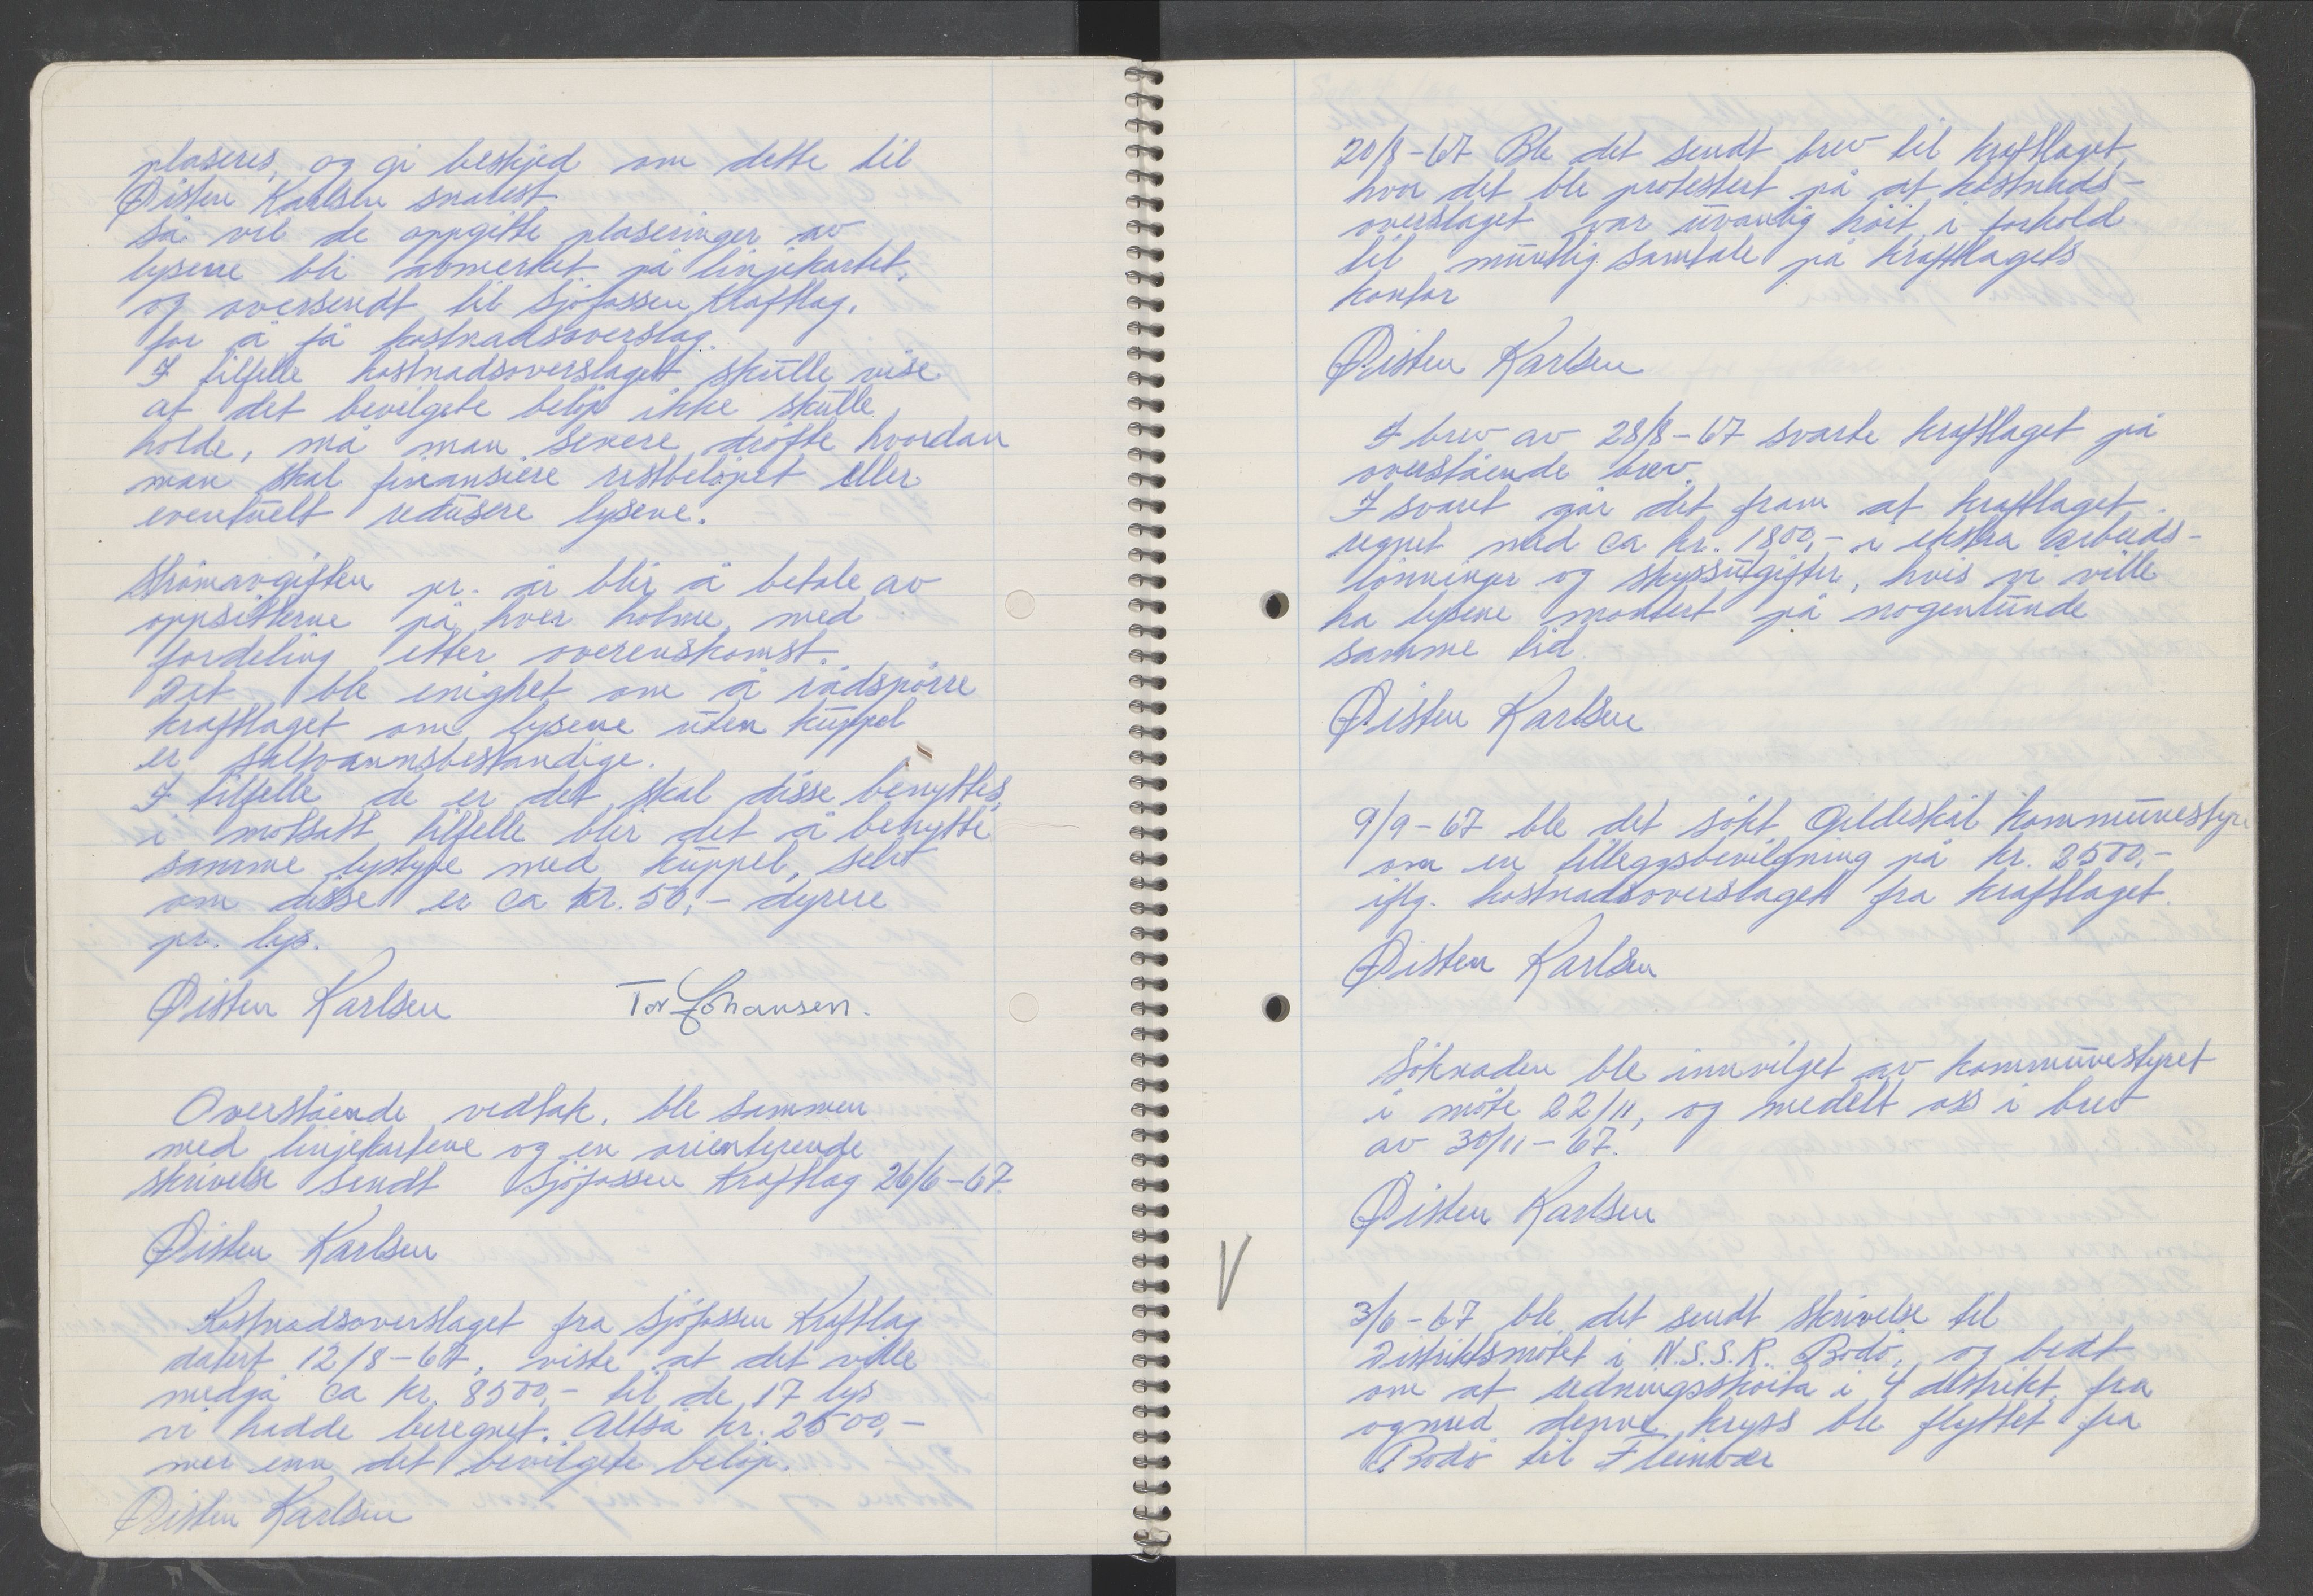 plaseres, og gi beskjed om dette til
Øisten Karlsen snarest
Så vil de oppgitte plaseringer av
lysene bli avmerket på linjekartet,
og oversendt til Sjöfossen Kraftlag,
for å få kostnadsoverslag.
I tilfelle kostnadsoverslaget skulle vise
at det bevilgete belöp ikke skulle
holde, må man senere dröfte hvordan
man skal finansiere restbelöpet eller
eventuelt redusere lysene.
Strömavgiften pr. år blir å betale av
oppsitterne på hver holme, med
fordeling etter overenskomst.
Det ble enighet om å rådspörre
kraftlaget om lysene uten kuppel
er saltvannsbestandige.
I tilfelle de er det skal disse benyttes,
i motsatt tilfelle blir det å benytte
samme lystype med kuppel, selvt
om disse er ca kr. 50,- dyrere
pr. lys.
Øisten Karlsen Tor Johansen.
Overstående vedtak, ble sammen
med linjekartene og en orienterende
skrivelse sendt Sjöfossen Kraftlag 26/6-67.
Øisten Karlsen
Kostnadsoverslaget fra Sjöfossen Kraftlag
datert 12/8-67, viste at det ville
medgå ca kr. 8500,- til de 17 lys
vi hadde beregnet. Altså kr. 2500,-
mer enn det bevilgete belöp.
Øisten Karlsen
20/8-67 Ble det sendt brev til kraftlaget,
hvor det ble protestert på at kostnads-
overslaget var uvanlig höit, i forhold
til muntlig samtale på kraftlagets
kontor
Øisten Karlsen
I brev av 28/8-67 svarte kraftlaget på
overstående brev.
I svaret går det fram at kraftlaget
regnet med ca kr. 1800,- i ekstra arbeids-
lönninger og skyssutgifter, hvis vi ville
ha lysene montert på nogenlunde
samme tid.
Øisten Karlsen
9/9-67 ble det sökt Gildeskål kommunestyre
om en tilleggsbevilgning på kr. 2500,-
iflg. kostnadsoverslaget fra kraftlaget.
Øisten Karlsen
Söknaden ble innvilget av kommunestyret
i möte 22/11, og medelt oss i brev
av 30/11-67.
Øisten Karlsen
V
3/6-67 ble det sendt skrivelse til
Distriktsmötet i N.S.S.R. Bodö, og bedt
om at redningsskoita i 4 distrikt, fra
ogmed denne kryss ble flyttet fra
Bodö til Fleinvær